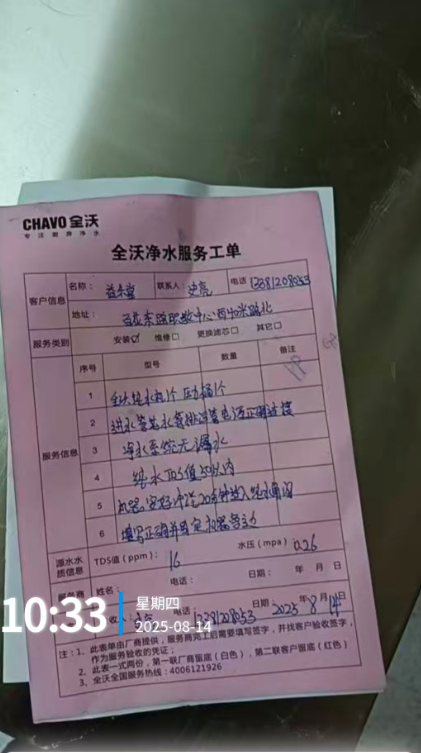 CHAVO 全沃
专注厨房净水
全沃净水服务工单
客户信息
名称： 益禾堂 联系人： 史亮 电话
地址：
服务类别 安装☑ 维修☐ 更换滤芯☐ 其它☐
服务信息
序号 型号 数量 备注
1 全沃纯水机1个 压力桶1个
2 进水管纯水管排污管电源正确连接
3 净水系统无漏水
4 纯水TDS值50以内
5
6
源水水质信息 TDS值（ppm）： 16 水压（mpa） 0.26
服务商 姓名： 电话： 日期： 年 月 日
电话 日期 2025年8月14日
注：1、此表单由厂商提供，服务商完工后需要填写签字，并找客户验收签字，
作为服务验收的凭证；
2、此表一式两份，第一联厂商留底（白色），第二联客户留底（红色）
3、全沃全国服务热线：4006121926
10:33
星期四
2025-08-14